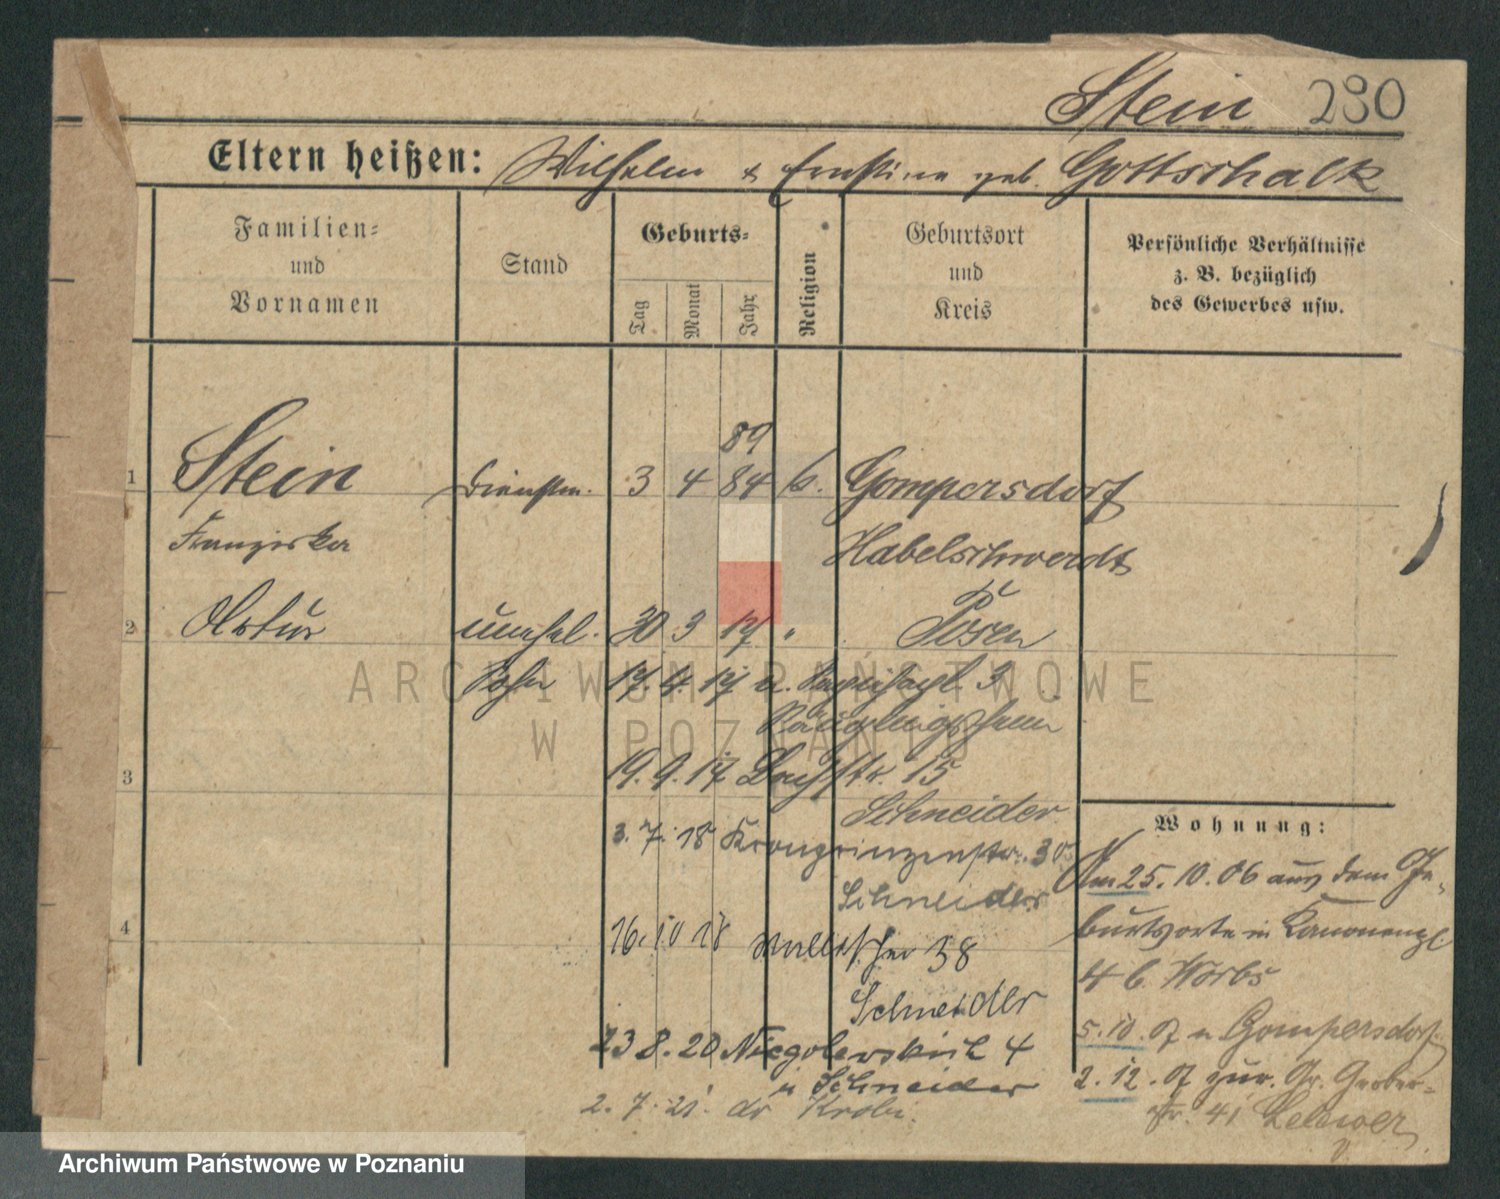 Stein 230
Eltern heißen: Wilhelm & Ernstine geb. Gottschalk
Familien-
und
Vornamen
Stand
Geburts-
Tag
Monat
Jahr
Religion
Geburtsort
und
Kreis
Persönliche Verhältnisse
z. B. bezüglich
des Gewerbes usw.
89
1 Stein Dienstm. 3 4 84 k. Gompersdorf
Franziska Habelschwerdt
2 Artur unehel. 30 3 17 " Posen
Sohn 17. 4. 17 3
Säuglingsheim
3 19. 9. 17 15
Schneider
3. 7. 18 Kronprinzenstr. 30
Schneider
4 16. 10 18 38
Schneider
23 8. 20 Niegolewskich 4
u Schneider
2. 7. 21. Krobi
Wohnung:
Am 25. 10. 06 aus dem Ge-
burtsorte in Kanonenpl.
4 b. Worbs
5. 10. 07 n Gompersdorf
2. 12. 07 zur. Gr. Gerber-
str. 41
ARCHIWUM PAŃSTWOWE
W POZNANIU
Archiwum Państwowe w Poznaniu